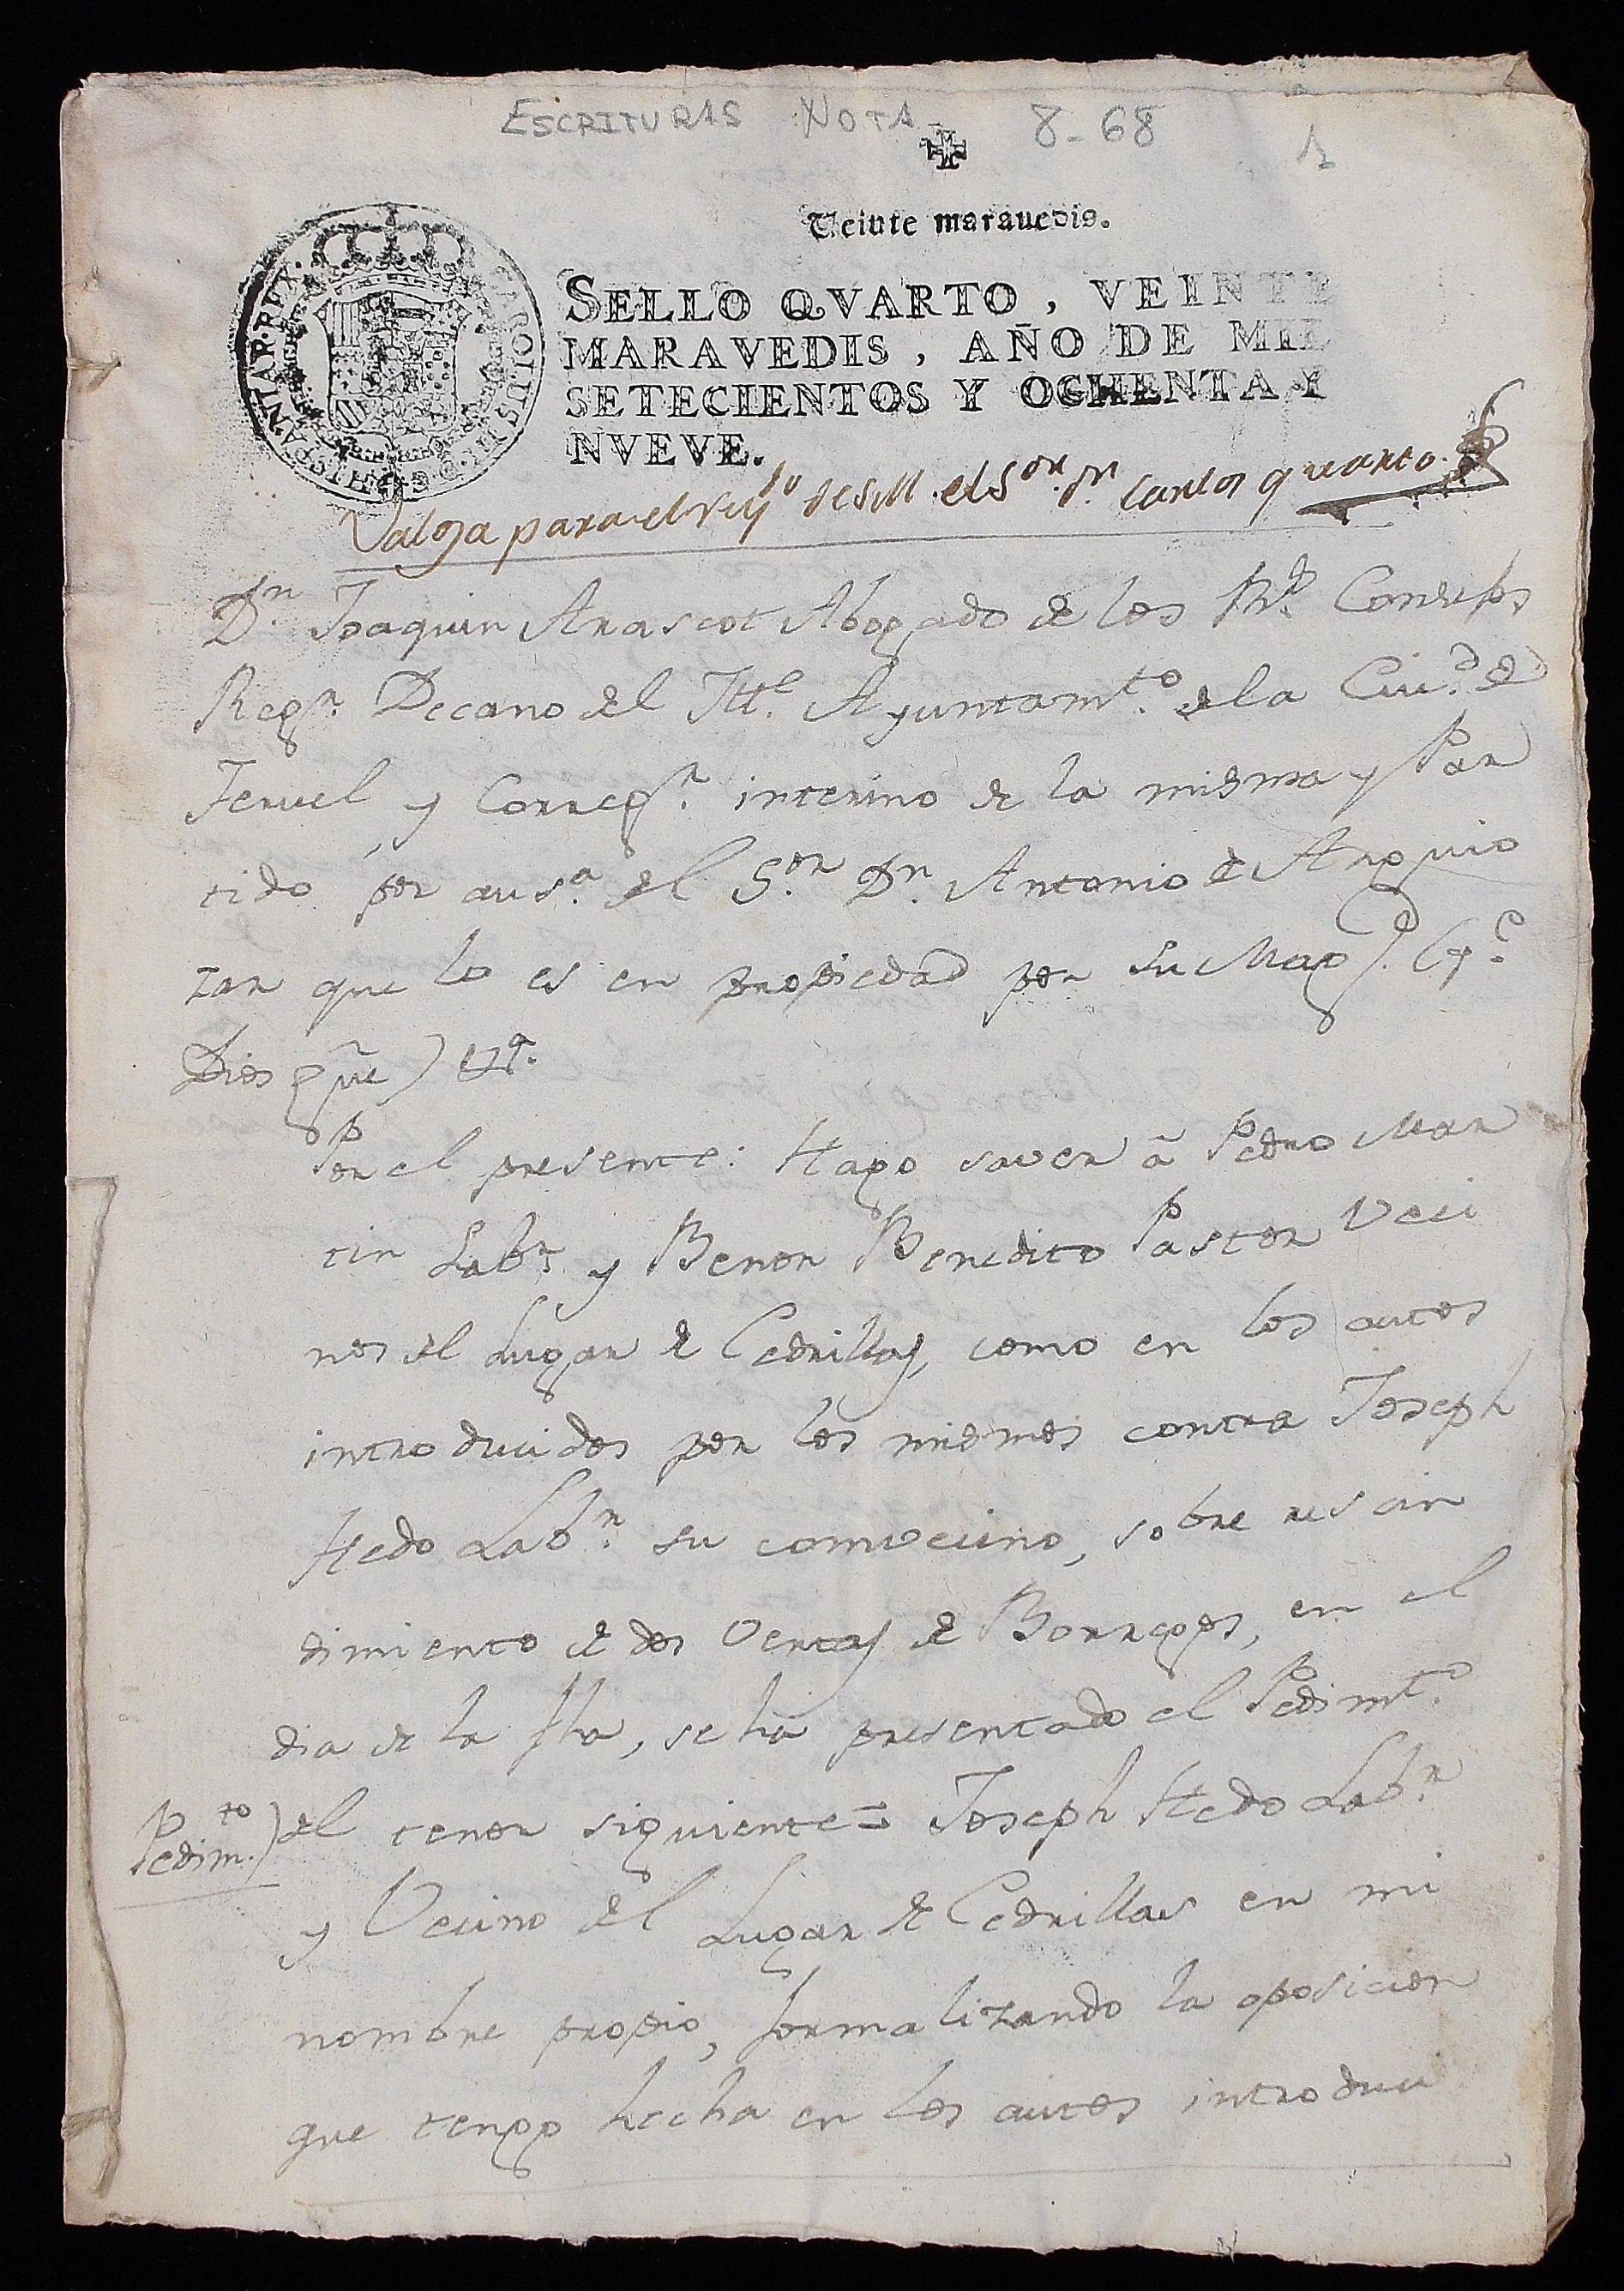 ESCRITURAS NOTA 8-68 1
Veinte maravedis.
SELLO QVARTO, VEINTE
MARAVEDIS, AÑO DE MIL
SETECIENTOS Y OCHENTA Y
NVEVE.
CAROLUS III D G HISPANIAR REX
Valga para el reyndo de S M. el Sor. Dn. Carlos quarto.
Dn. Joaquin Arascot Abogado de los Rs. Consejos
Regr. Decano del Itte. Ayuntamto. de la Ciud. de
Teruel, y Corregr. interino de la misma y Par
tido por ausa. del Sor. Dn. Antonio de Arguin
zar que lo es en propiedad por su Magd. (qe.
Dios gue) &a.
Por el presente: Hago saver â Pedro Mar
tin Labr. y Benon Benedito Pastor Veci
nos del Lugar de Cedrillas, como en los autos
introducidos por los mismos contra Joseph
Hedo Labr. su comvecino, sobre rescin
dimiento de dos Ventas de Borregos, en el
dia de la fha, se ha presentado el Pedimto.
Pedimto.) del tenor siguiente = Joseph Hedo Labr.
y Vecino del Lugar de Cedrillas en mi
nombre propio, formalizando la oposicion
que tengo hecha en los autos introduci